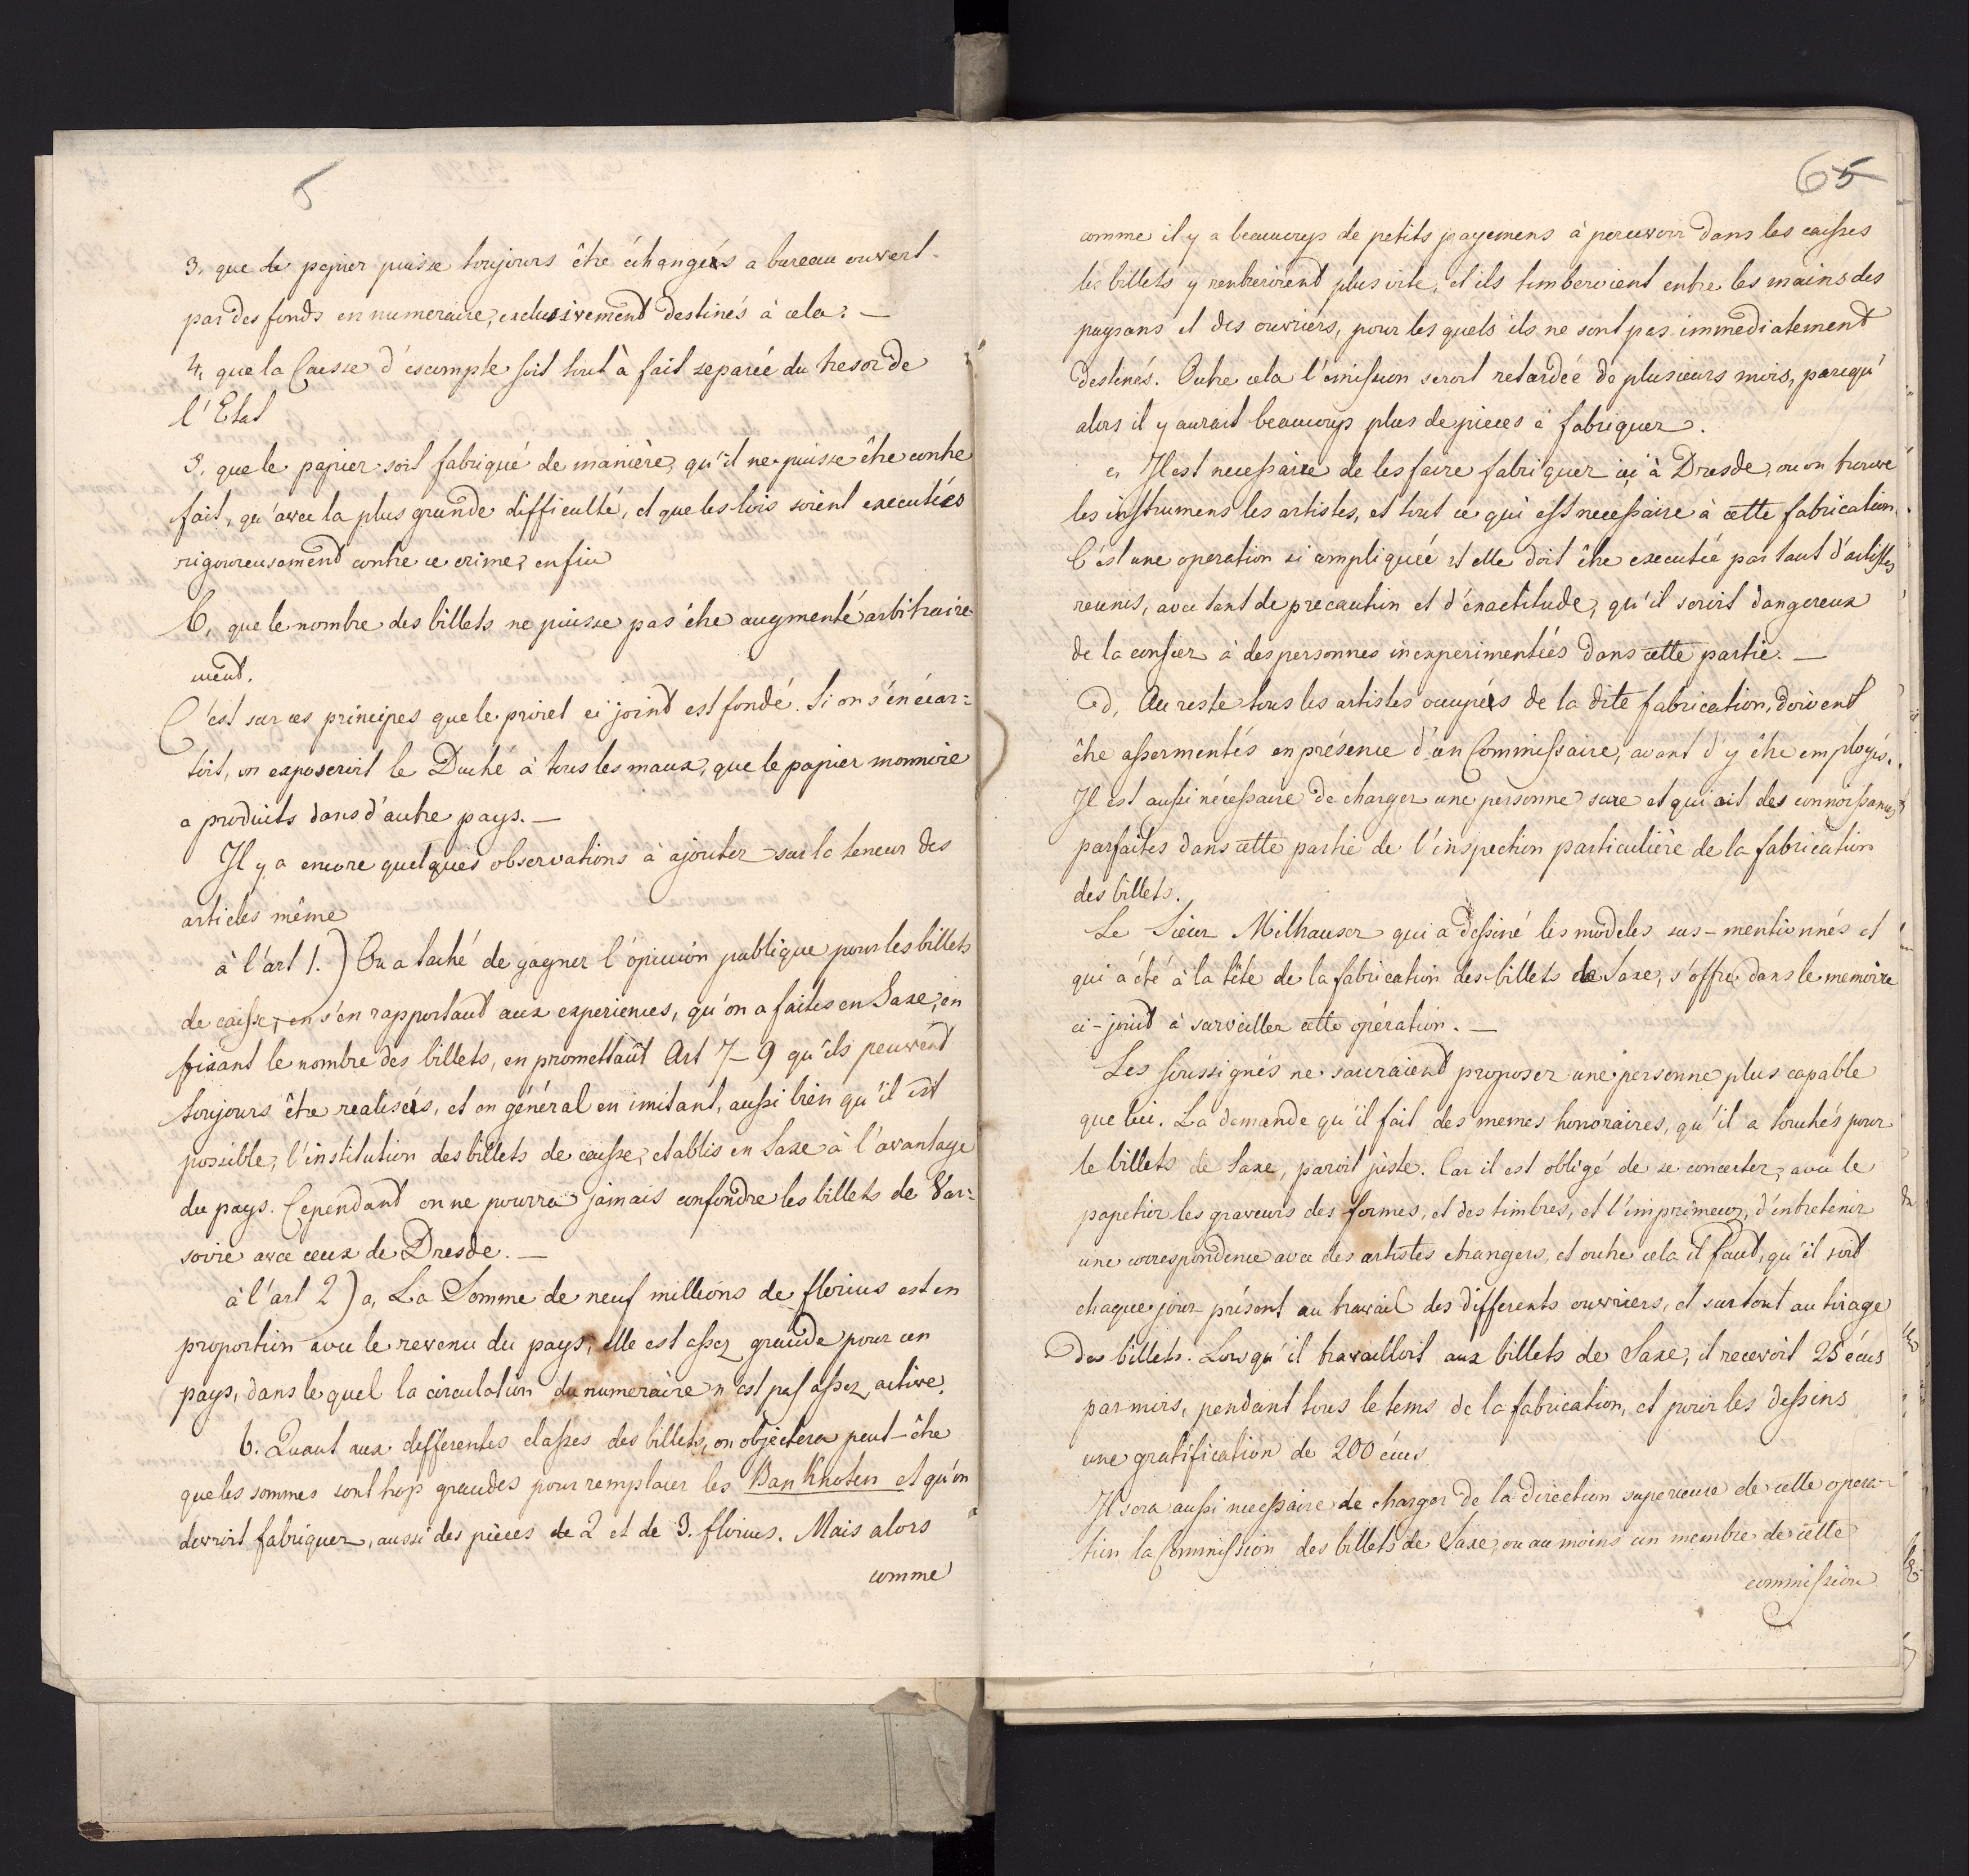 5
3, que le papier puisse toujours être échangés a bureau ouvert
par des fonds en numeraire, exclusivement destinés à cela: —
4, que la Caisse d'escompte soit tout à fait separée du tresor de
l'Etat
5, que le papier soit fabriqué de manière, qu'il ne puisse être contre
fait, qu'avec la plus grande difficulté, et que les lois soient executées
rigoureusement contre ce crime, enfin
6, que le nombre des billets ne puisse pas être augmenté arbitraire-
ment.
C'est sur ces principes que le projet ci joint est fondé. Si on s'en écar=
toit, on exposeroit le Duché à tous les maux, que le papier monnoie
a produits dans d'autre pays. —
Il y a encore quelques observations à ajouter sur la teneur des
articles même
à l'art 1.) On a taché de gagner l'opinion publique pour les billets
de caisse, en s'en rapportant aux experiences, qu'on a faites en Saxe, en
fixant le nombre des billets, en promettant Art 7-9 qu'ils peuvent
toujours être realisés, et en général en imitant, aussi bien qu'il est
possible, l'institution des billets de caisse, etablis en Saxe à l'avantage
du pays. Cependant on ne pourra jamais confondre les billets de Var=
sovie avec ceux de Dresde. —
à l'art 2) a, La Somme de neuf millions de florins est en
proportion avec le revenu du pays, elle est assez grande pour un
pays, dans le quel la circulation du numeraire n'est pas assez active.
b. Quant aux differentes classes des billets, on objectera peut-être
que les sommes sont trop grandes pour remplacer les Banknoten et qu'on
devroit fabriquer, aussi des pièces de 2 et de 3. florins. Mais alors
comme
65
comme il y a beaucoup de petits payemens à percevoir dans les caisses
les billets y rentreroient plus vite, et ils tomberoient entre les mains des
paysans et des ouvriers, pour les quels ils ne sont pas immediatement
destinés. Outre cela l'emission seroit retardée de plusieurs mois, parcqu'
alors il y aurait beaucoup plus de pieces à fabriquer.
c, Il est necessaire de les faire fabriquer ici à Dresde, ou on trouve
les instrumens les artistes, et tout ce qui est necessaire à cette fabrication.
C'est une operation si compliquée et elle doit être executée par tant d'artistes
reunis, avec tant de precaution et d'exactitude, qu'il seroit dangereux
de la confier à des personnes inexperimentées dans cette partie. —
d, Au reste tous les artistes occupés de la dite fabrication, doivent
être assermentés en présence d'un Commissaire, avant d'y être employés.
Il est aussi nécessaire de charger une personne sure et qui ait des connoissances
parfaites dans cette partie de l'inspection particulière de la fabrication
des billets.
Le Sieur Milhauser qui a dessiné les modeles sus-mentionnés et
qui a été à la tête de la fabrication des billets de Saxe, s'offre dans le memoire
ci-joint à surveiller cette opération. —
Les soussignés ne sauraient proposer une personne plus capable
que lui. La demande qu'il fait des memes honoraires, qu'il a touchés pour
le billets de Saxe, paroit juste. Car il est obligé de se concerter, avec le
papetier les graveurs des formes, et des timbres, et l'imprimeur, d'entretenir
une correspondence avec des artistes etrangers, et outre cela il faut, qu'il soit
chaque jour présent au travail des differents ouvriers, et surtout au tirage
des billets. Lorsqu'il travailloit aux billets de Saxe, il recevoit 25 écus
par mois, pendant tous le tems de la fabrication, et pour les dessins
une gratification de 200 écus.
Il sera aussi necessaire de charger de la direction superieure de cette opera-
tion la Commission des billets de Saxe, ou au moins un membre de cette
commission